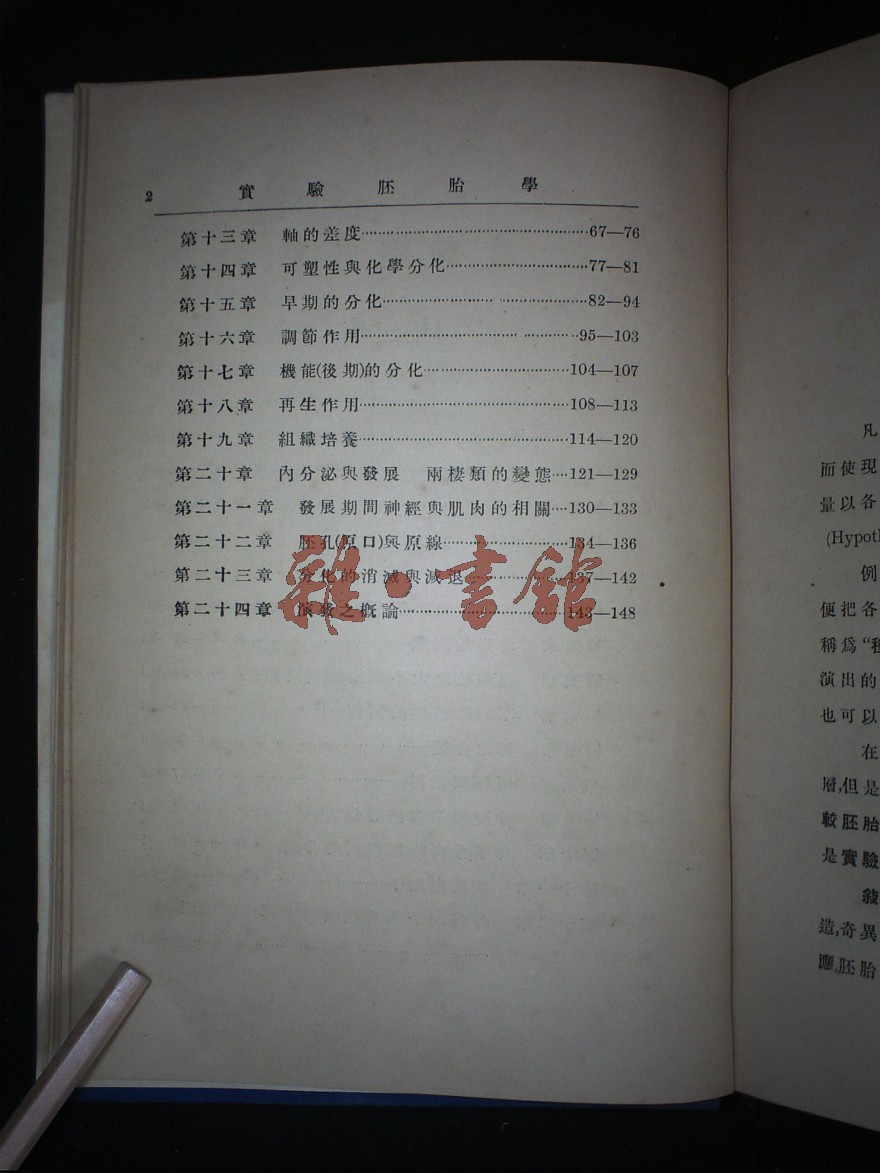 2 實驗胚胎學
第十三章 軸的差度……67—76
第十四章 可塑性與化學分化……77—81
第十五章 早期的分化……82—94
第十六章 調節作用……95—103
第十七章 機能(後期)的分化……104—107
第十八章 再生作用……108—113
第十九章 組織培養……114—120
第二十章 內分泌與發展 兩棲類的變態…121—129
第二十一章 發展期間神經與肌肉的相關…130—133
第二十二章 胚孔(原口)與原線……134—136
第二十三章 分化的消滅與減退……137—142
第二十四章 演發之概論……143—148
雜·書館
凡
而使現
量以各
(Hypoth
例
便把各
稱爲“種
演出的
也可以
在
層,但是
較胚胎
是實驗
敍
造,奇異
應,胚胎